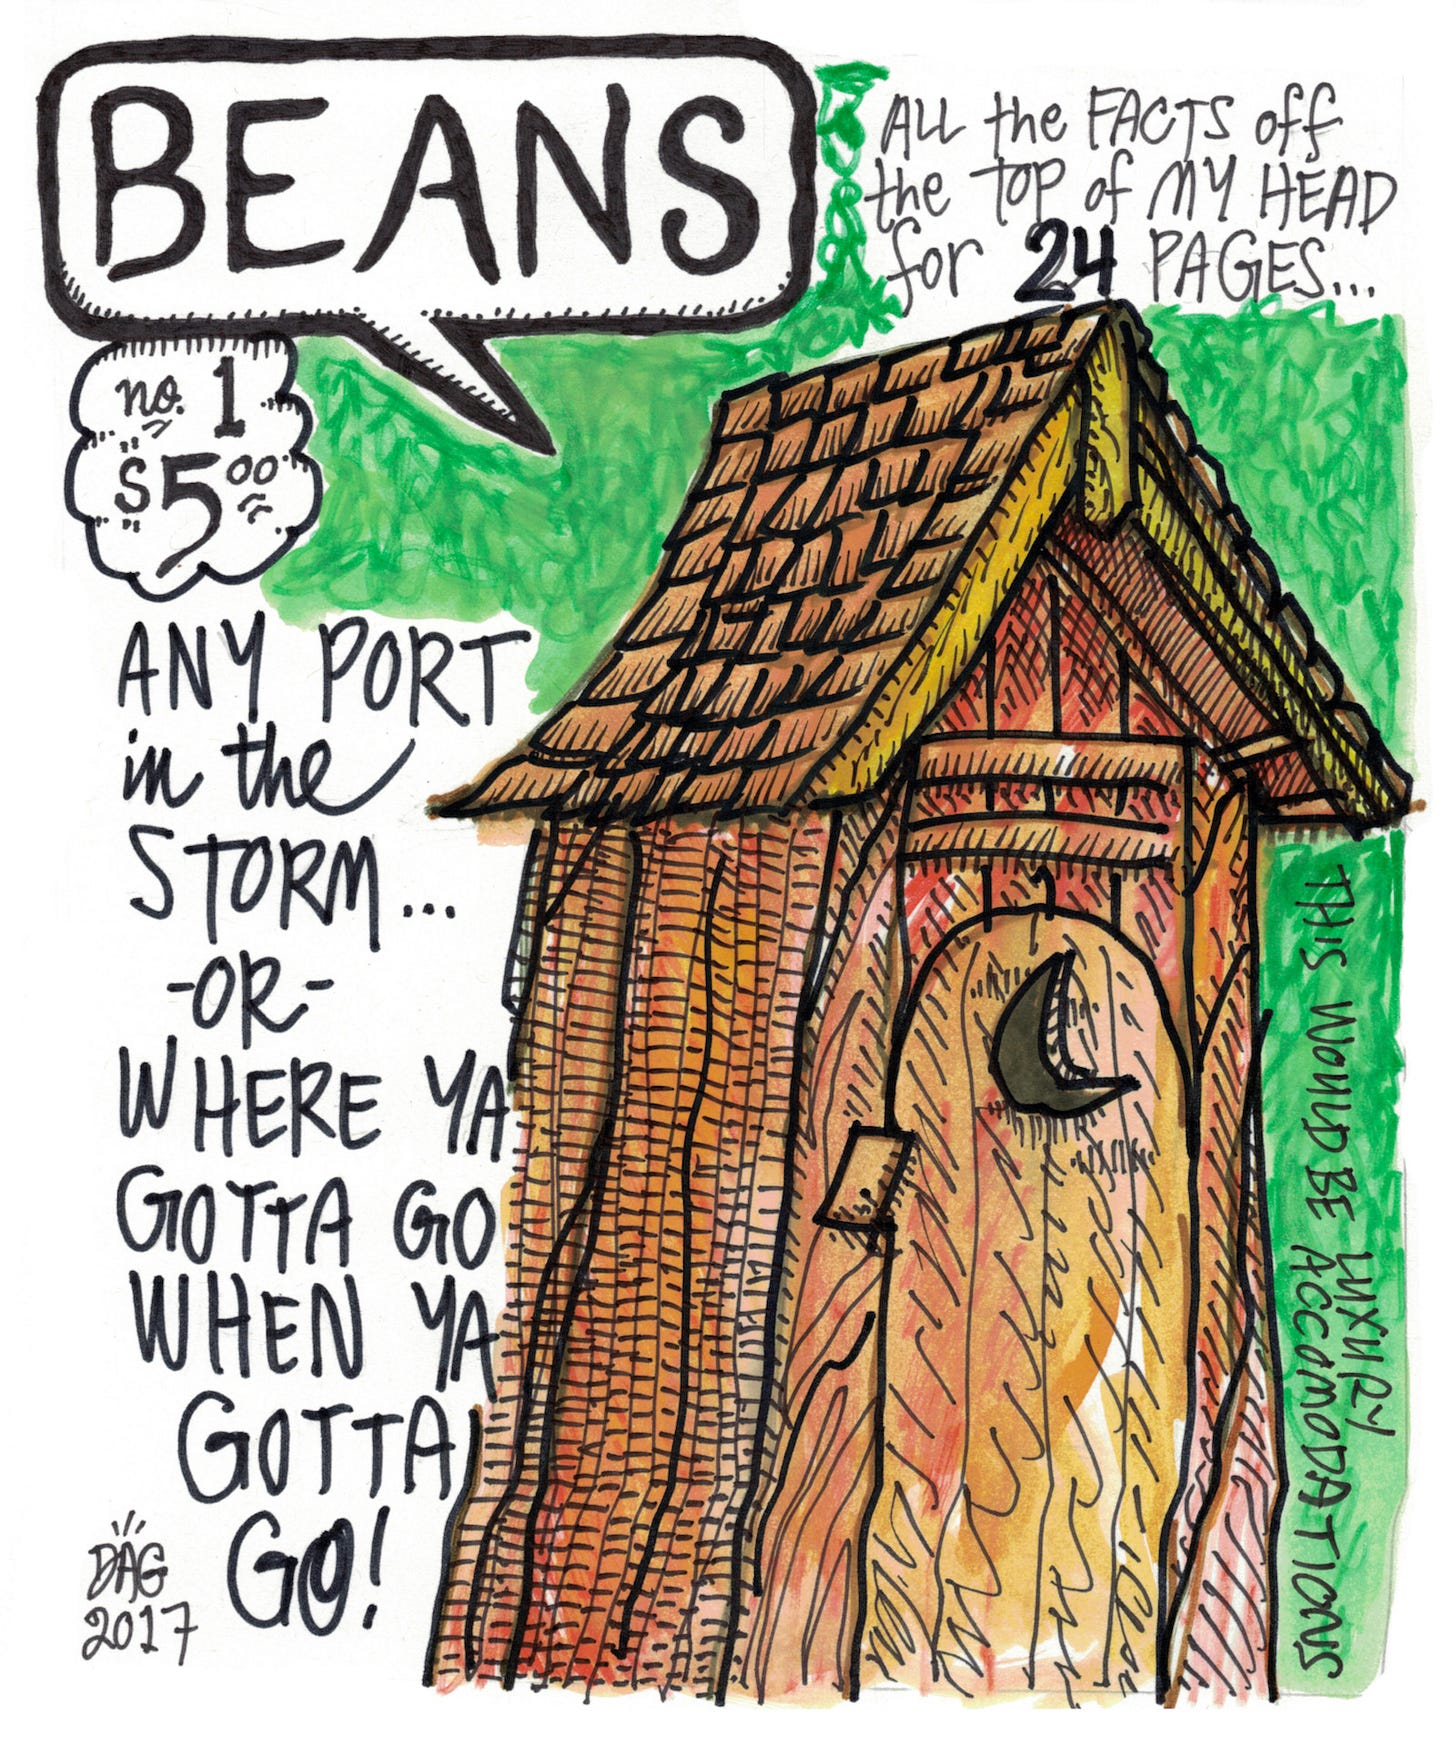 BEANS
ALL the FACTS off
the TOP of MY HEAD
for 24 PAGES...
no. 1
$5.00
ANY PORT
in the
STORM...
-OR-
WHERE YA
GOTTA GO
WHEN YA
GOTTA
GO!
DAG
2017
THIS WOULD BE
LUXURY
ACCOMODATIONS